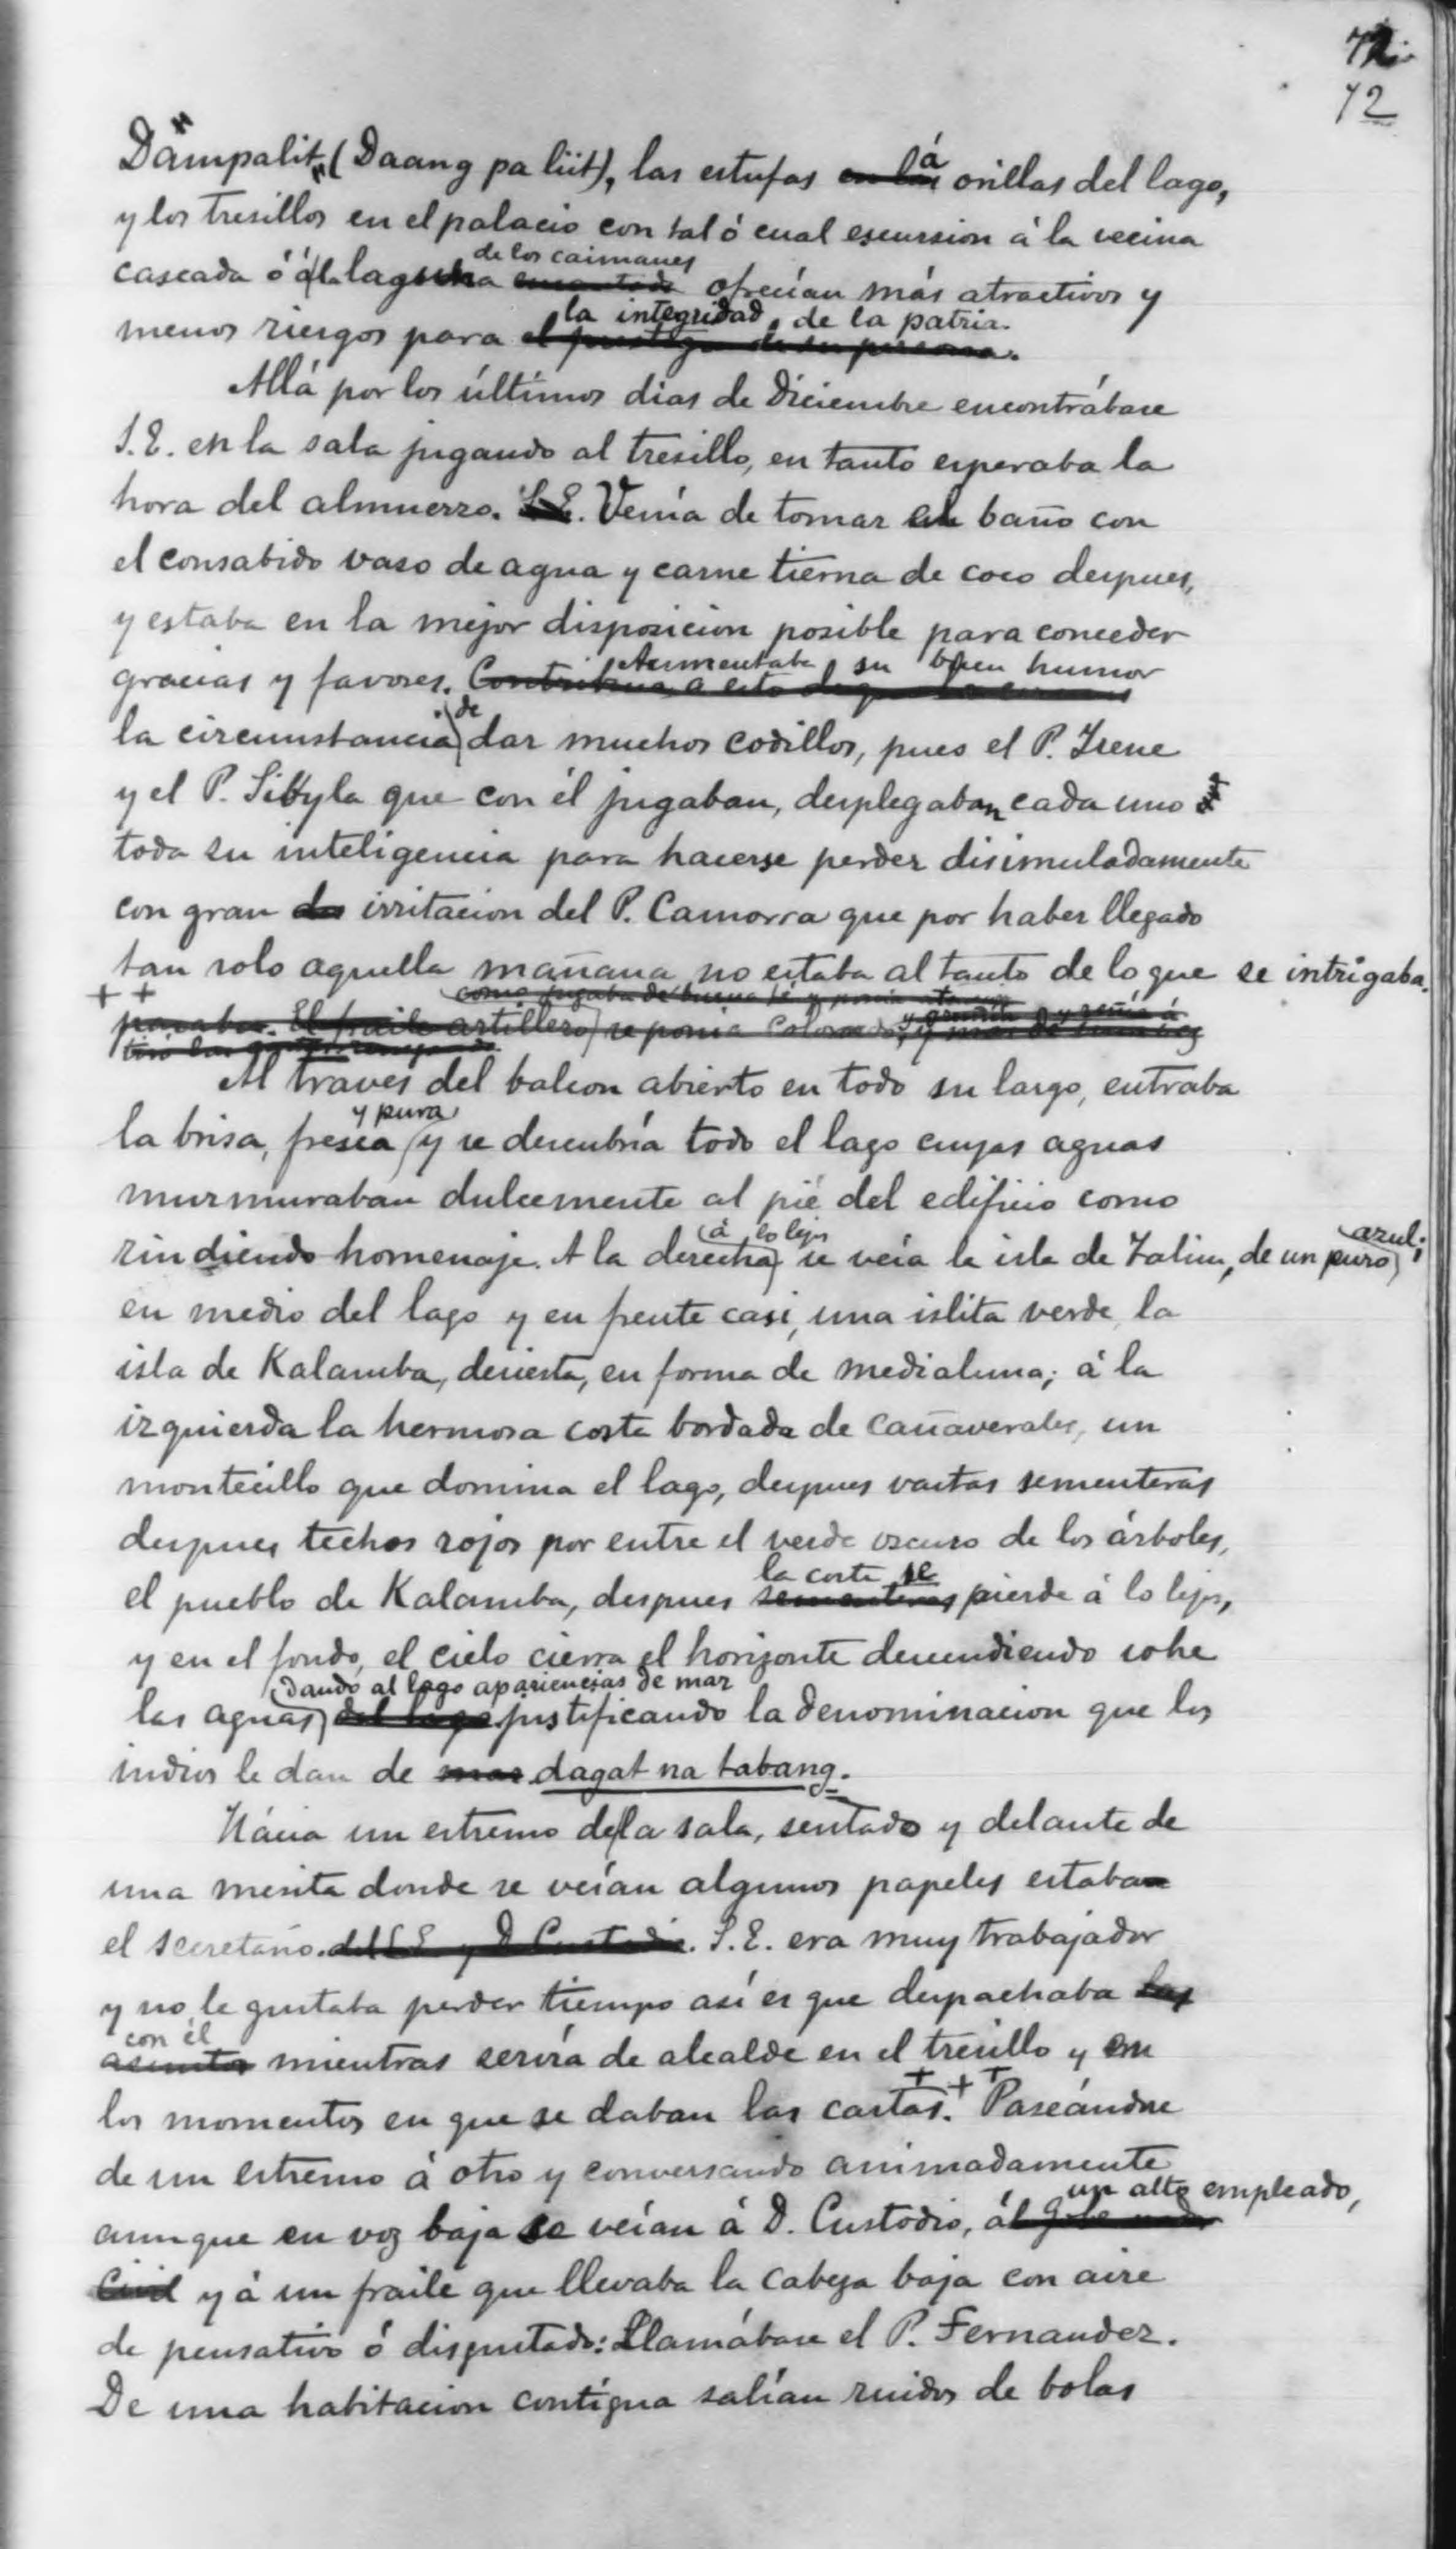 72
72
"Dampalit" (Daang pa liit), las estufas en las á orillas del lago,
y los tresillos en el palacio con tal ó cual escursion á la vecina
de los caimanes
cascada ó á la laguna encantada ofrecían más atractivos y
la integridad de la patria.
menos riesgos para el prestigio de su persona.
Allá por los últimos dias de Diciembre encontrábase
S. E. en la sala jugando al tresillo, en tanto esperaba la
hora del almuerzo. S. E. Venía de tomar el baño con
el consabido vaso de agua y carne tierna de coco despues,
y estaba en la mejor disposicion posible para conceder
Aumentaba su buen humor
gracias y favores. Contribuía a esto
la circunstancia de dar muchos codillos, pues el P. Irene
y el P. Sibyla que con él jugaban, desplegaban cada uno
toda su inteligencia para hacerse perder disimuladamente
con gran irritacion del P. Camorra que por haber llegado
tan solo aquella mañana no estaba al tanto de lo que se intrigaba.
++
como jugaba de buena fé y ponía
pasaba. El fraile artillero se ponía colorado y
Al traves del balcon abierto en todo su largo, entraba
y pura
la brisa, fresca y se descubría todo el lago cuyas aguas
murmuraban dulcemente al pié del edificio como
á lo lejos azul;
rindiendo homenaje. A la derecha se veía la isla de Talim, de un puro
en medio del lago y en frente casi, una islita verde, la
isla de Kalamba, desierta, en forma de medialuna; á la
izquierda la hermosa costa bordada de cañaverales, un
montecillo que domina el lago, despues vastas sementeras
despues techos rojos por entre el verde oscuro de los árboles,
la costa se
el pueblo de Kalamba, despues sementeras pierde á lo lejos,
y en el fondo, el cielo cierra el horizonte descendiendo sobre
dando al lago apariencias de mar
las aguas del lago justificando la denominacion que los
indios le dan de mar dagat na tabang.
Hácia un estremo de la sala, sentado y delante de
una mesita donde se veían algunos papeles estaban
el secretario. del S. E. y D. Custodio. S. E. era muy trabajador
y no le gustaba perder tiempo así es que despachaba los
con él
asuntos mientras servía de alcalde en el tresillo y en
los momentos en que se daban las cartas. +++ Paseándose
de un estremo á otro y conversando animadamente
un alto empleado,
aunque en voz baja se veían á D. Custodio, ál Gobernador
Civil y á un fraile que llevaba la cabeza baja con aire
de pensativo ó disgustado: Llamábase el P. Fernandez.
De una habitacion contigua salían ruidos de bolas